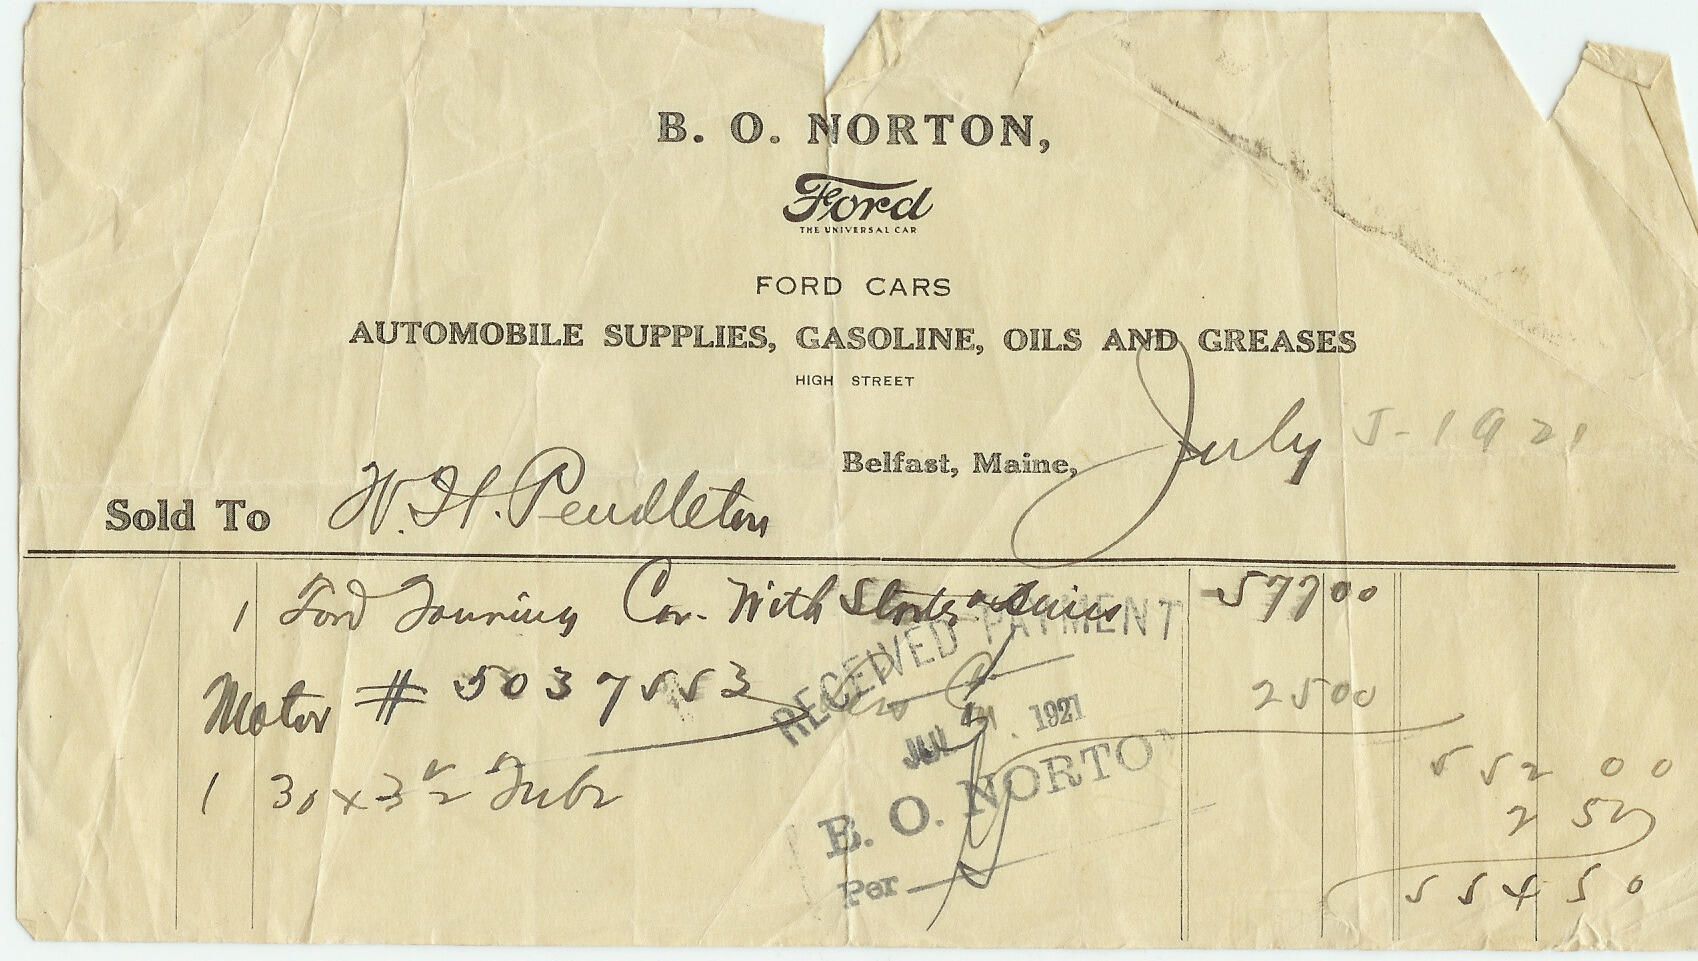 B. O. NORTON,
Ford
THE UNIVERSAL CAR
FORD CARS
AUTOMOBILE SUPPLIES, GASOLINE, OILS AND GREASES
HIGH STREET
Belfast, Maine, July 5-1921
Sold To W. H. Pendleton
1 Ford Touring Car. With Starter 577 00
Motor # 5037553 25 00
RECEIVED PAYMENT
JUL 1921
552 00
1 30 x 3 1/2 Tube 2 50
B. O. NORTON
Per
554 50